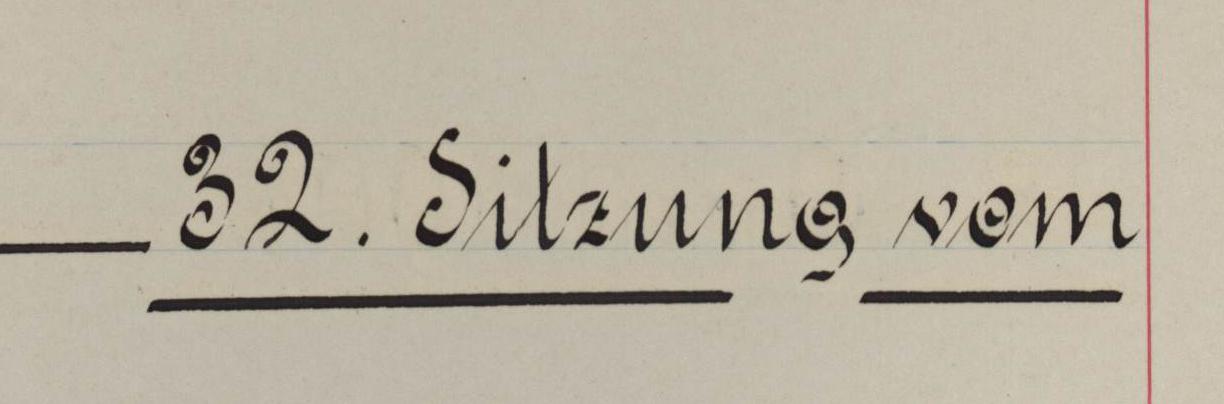 32. Sitzung vom